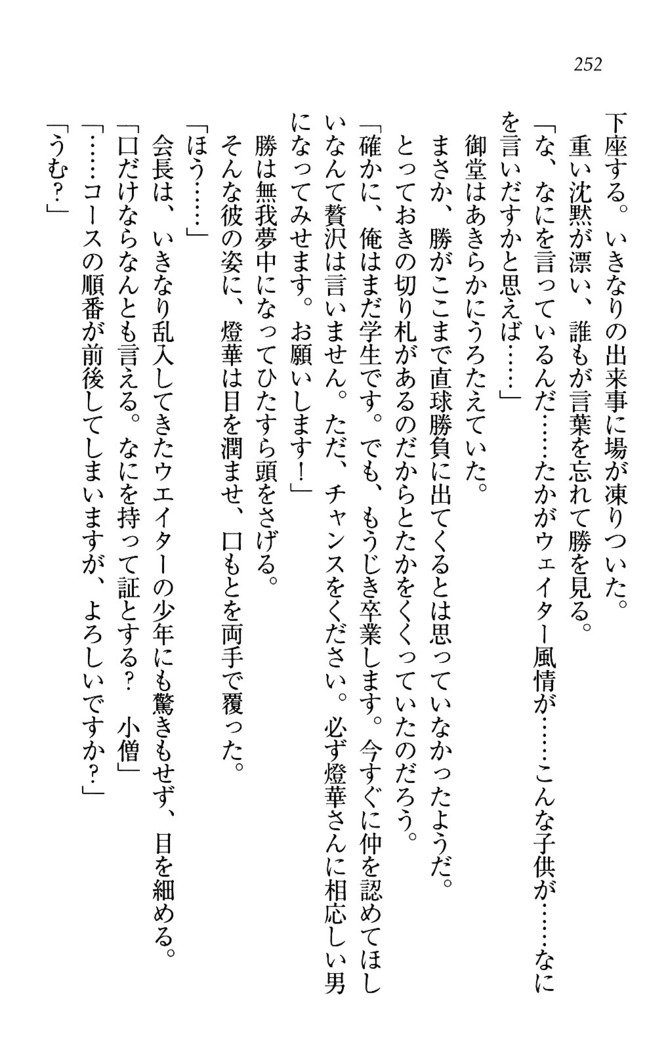 252
下座する。いきなりの出来事に場が凍りついた。
重い沈黙が漂い、誰もが言葉を忘れて勝を見る。
「な、なにを言っているんだ……たかがウェイター風情が……こんな子供が……なに
を言いだすかと思えば……」
御堂はあきらかにうろたえていた。
まさか、勝がここまで直球勝負に出てくるとは思っていなかったようだ。
とっておきの切り札があるのだからとたかをくくっていたのだろう。
「確かに、俺はまだ学生です。でも、もうじき卒業します。今すぐに仲を認めてほし
いなんて贅沢は言いません。ただ、チャンスをください。必ず燈華さんに相応しい男
になってみせます。お願いします！」
勝は無我夢中になってひたすら頭をさげる。
そんな彼の姿に、燈華は目を潤ませ、口もとを両手で覆った。
「ほう……」
会長は、いきなり乱入してきたウエイターの少年にも驚きもせず、目を細める。
「口だけならなんとも言える。なにを持って証とする？　小僧」
「……コースの順番が前後してしまいますが、よろしいですか？」
「うむ？」